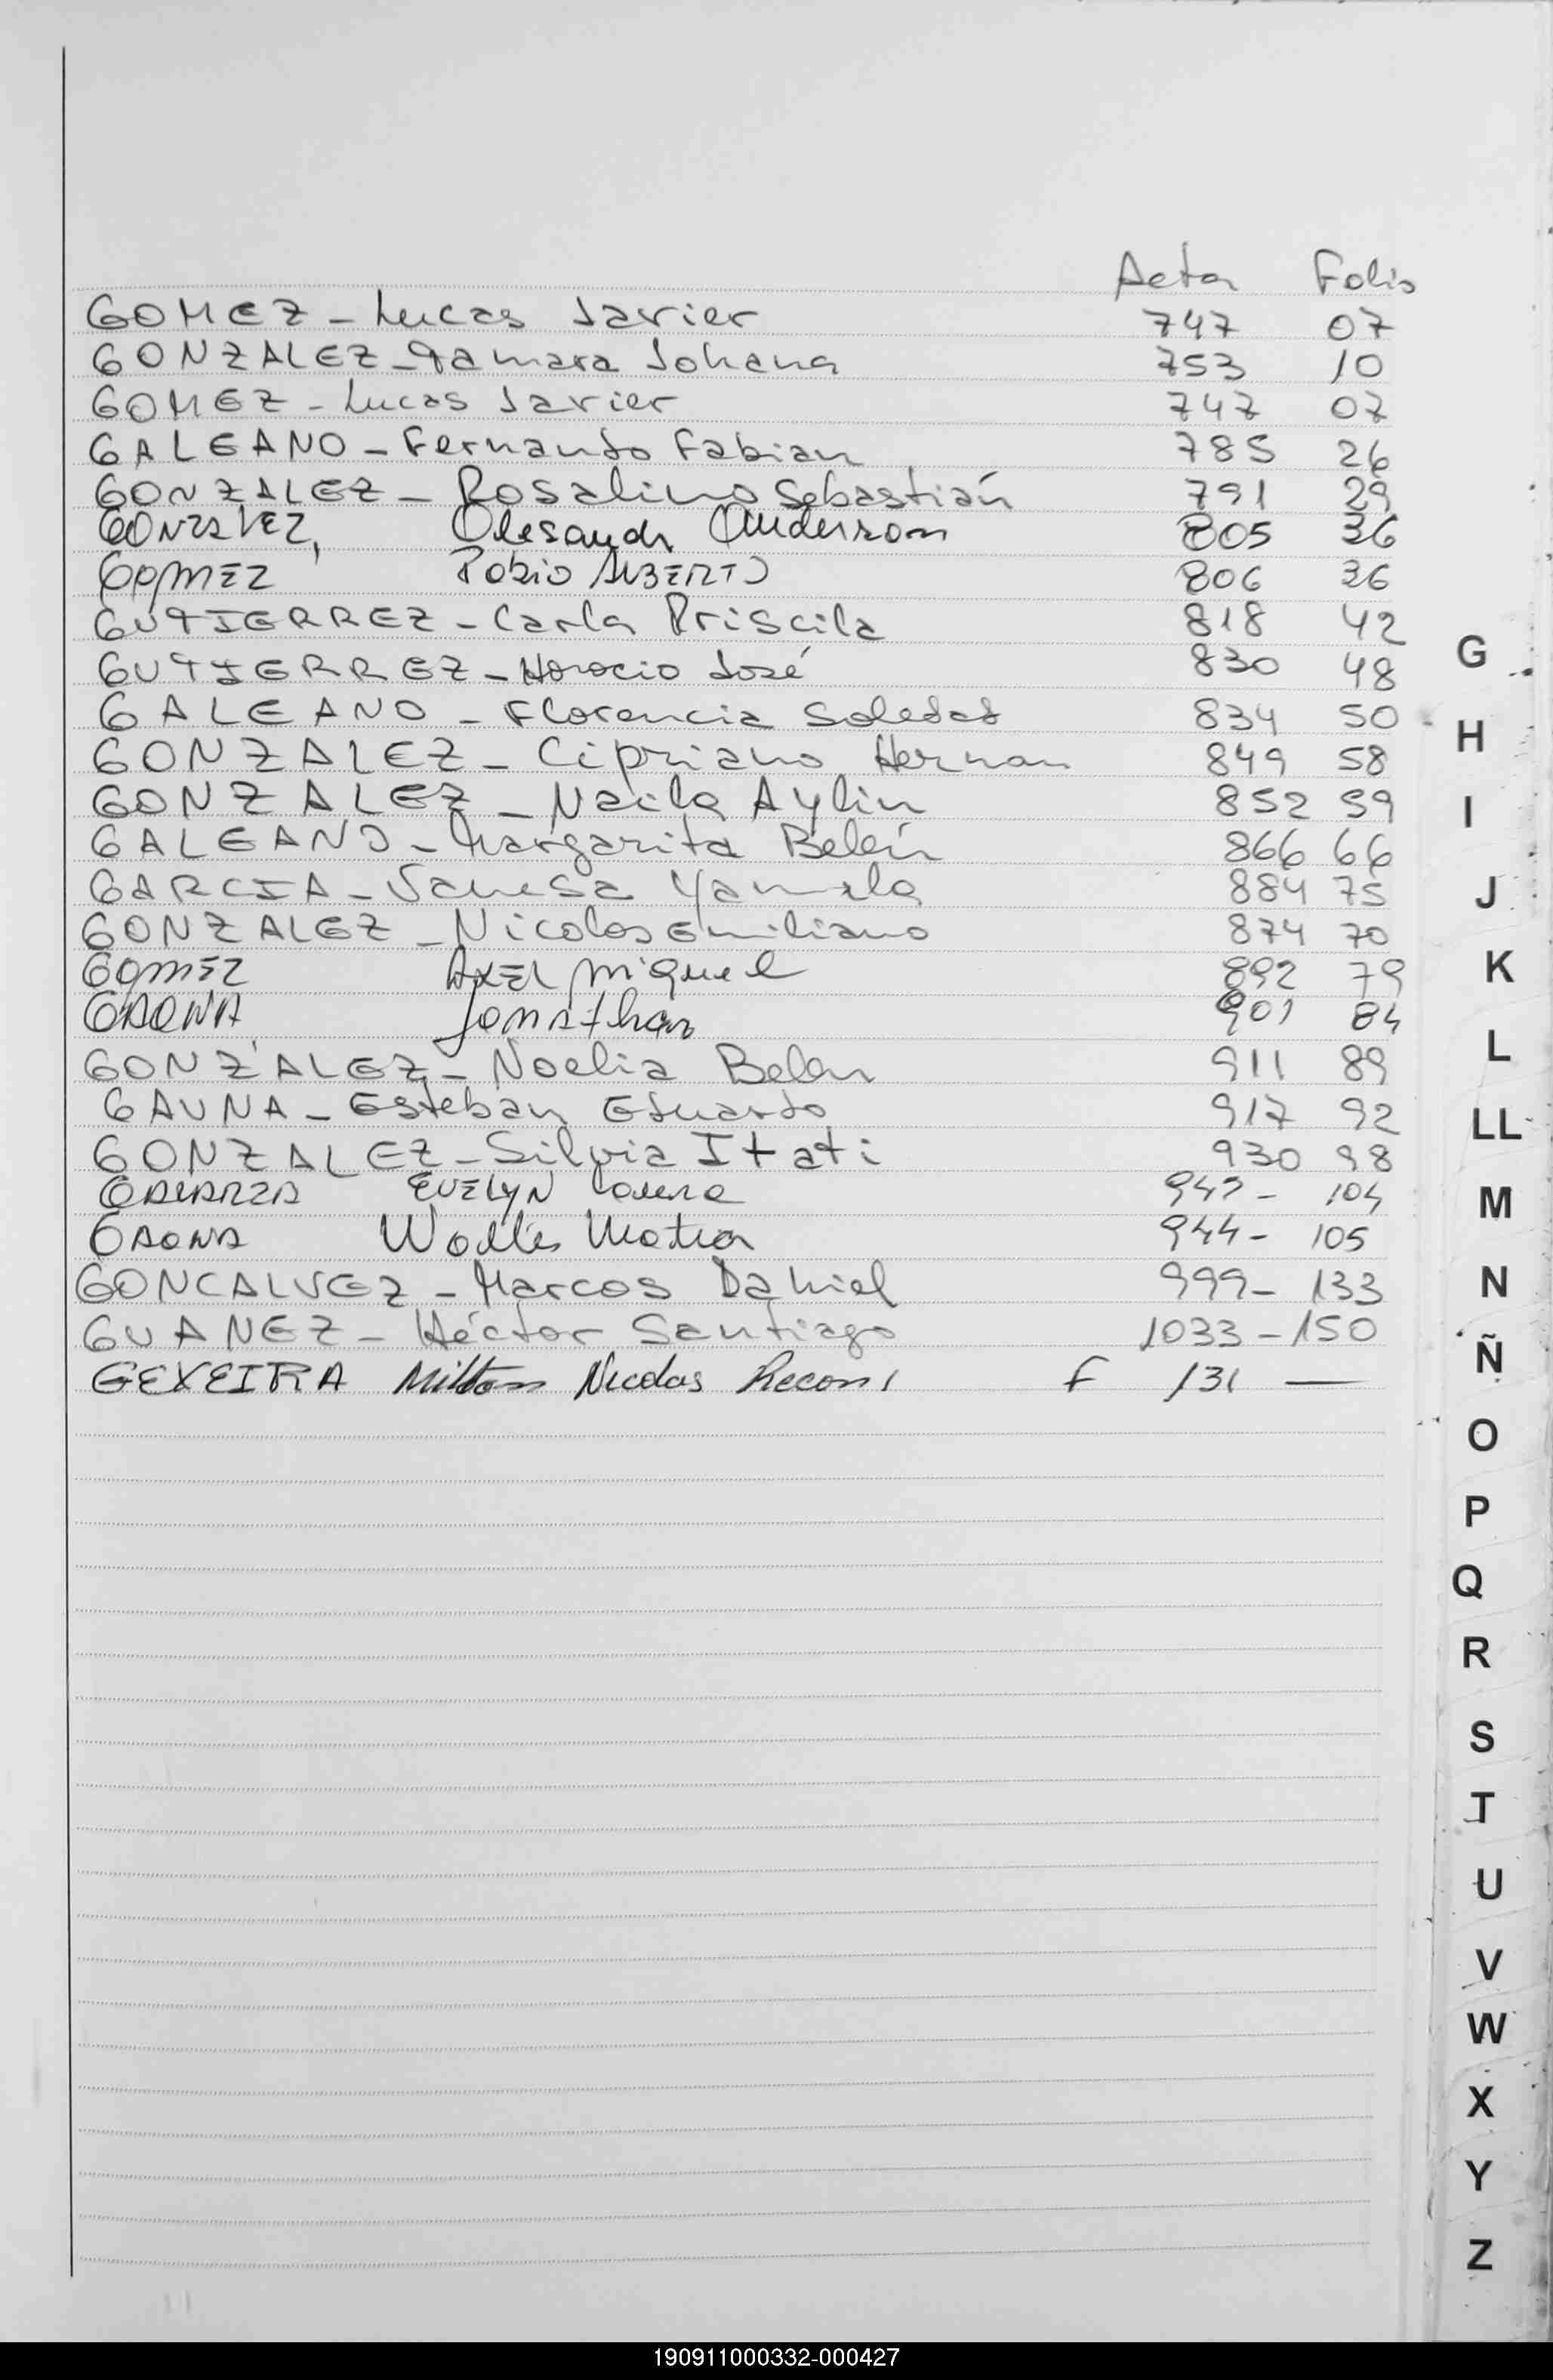 Acta Folio
GOMEZ - Lucas Javier 747 07
GONZALEZ - Tamara Johana 753 10
GOMEZ - Lucas Javier 747 07
GALEANO - Fernando Fabian 785 26
GONZALEZ - Rosalino Sebastián 791 29
Olesandr Anderson 805 36
GOMEZ AlBERTO 806 36
GUTIERREZ - Carla Priscila 818 42
GUTIERREZ - Horacio José 830 48
GALEANO - Florencia Soledad 834 50
GONZALEZ - Cipriano Hernan 849 58
GONZALEZ - Naila Aylin 852 59
GALEANO - Margarita Belén 866 66
GARCIA - Vanesa Yamila 884 75
GONZALEZ - Nicolas Emiliano 874 70
GomEz AxEl Miguel 892 79
GAONA Jonathan 901 84
GONZALEZ - Noelia Belen 911 89
GAUNA - Esteban Eduardo 917 92
GONZALEZ - Silvia Itati 930 98
EVElyN 104
GAONA 944 - 105
GONCALVEZ - Marcos Daniel 999 - 133
GUANEZ - Héctor Santiago 1033 - 150
GEXEIRA Milton Nicolas F 131 —
G
H
I
J
K
L
LL
M
N
Ñ
O
P
Q
R
S
T
U
V
W
X
Y
Z
190911000332-000427